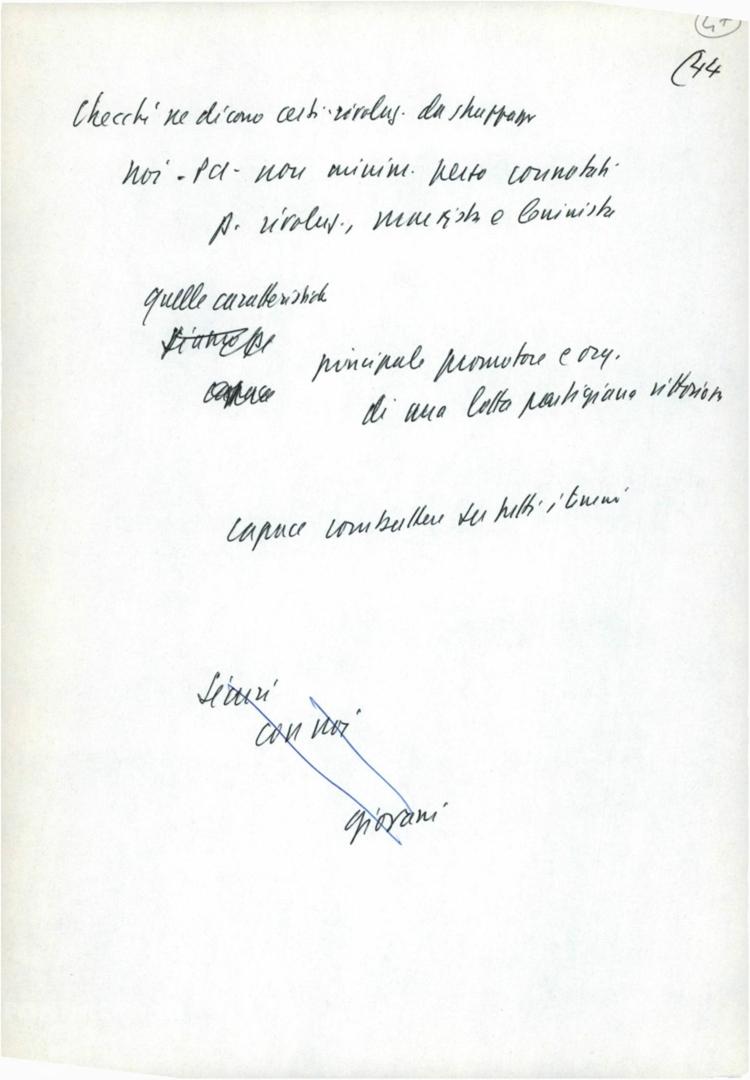 44
Checchi ne dicono certi rivoluz. da strapazzo
noi - PCI - non minim. perso connotati
p. rivoluz., marxista e leninista
quelle caratteristiche
siamo
capace
principale promotore e org.
di una lotta partigiana vittoriosa
capace combattere su tutti i terreni
sicuri
con noi
giovani